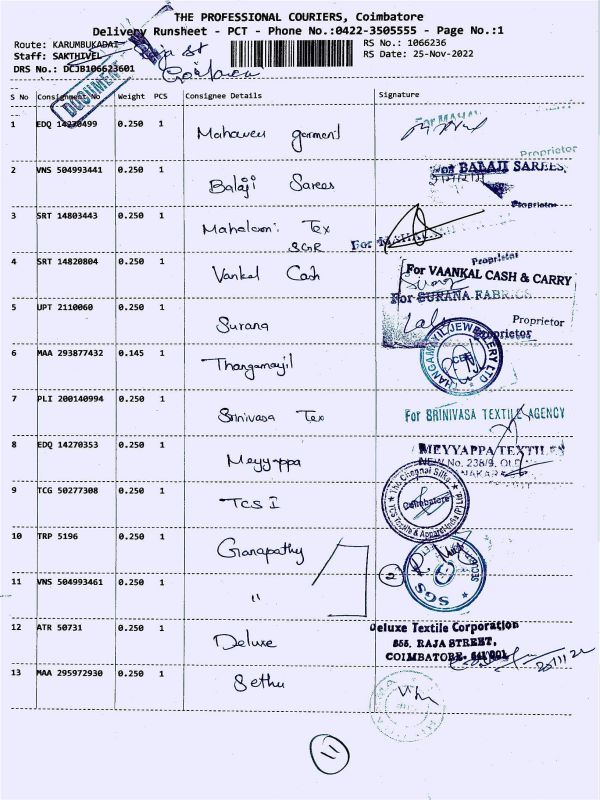 THE PROFESSIONAL COURIERS, Coimbatore
Delivery Runsheet - PCT - Phone No.:0422-3505555 - Page No.:1
Route: KARUMBUKADAI Raja st
RS No.: 1066236
Staff: SAKTHIVEL
RS Date: 25-Nov-2022
DRS No.: DCJB106623601
DOCUMENT
S No Consignment No Weight PCS Consignee Details Signature
1 EDQ 14270499 0.250 1 Mahaveer garment
Proprietor
2 VNS 504993441 0.250 1 Balaji Sarees
For BALAJI SAREES,
Proprietor
3 SRT 14803443 0.250 1 Tex
SGR
For
Proprietor
4 SRT 14820804 0.250 1 Vankal Cash
For VAANKAL CASH & CARRY
For SURANA FABRICS
5 UPT 2110060 0.250 1 Surana
Proprietor
Proprietor
6 MAA 293877432 0.145 1 Thangamayil
THANGAMAYIL JEWELLERY LTD
CBE
7 PLI 200140994 0.250 1 Srinivasa Tex
For SRINIVASA TEXTILE AGENCY
8 EDQ 14270353 0.250 1 Meyyappa
MEYYAPPA TEXTILES
NEW No. 238/9, OLD
9 TCG 50277308 0.250 1 TCS I
The Chennai Silks
Coimbatore
TCS Textile & Apparel India (P) LTD
10 TRP 5196 0.250 1 Ganapathy
SGS
2
11 VNS 504993461 0.250 1 "
12 ATR 50731 0.250 1 Deluxe
Deluxe Textile Corporation
555, RAJA STREET,
COIMBATORE- 641 001
13 MAA 295972930 0.250 1 Sethu
11